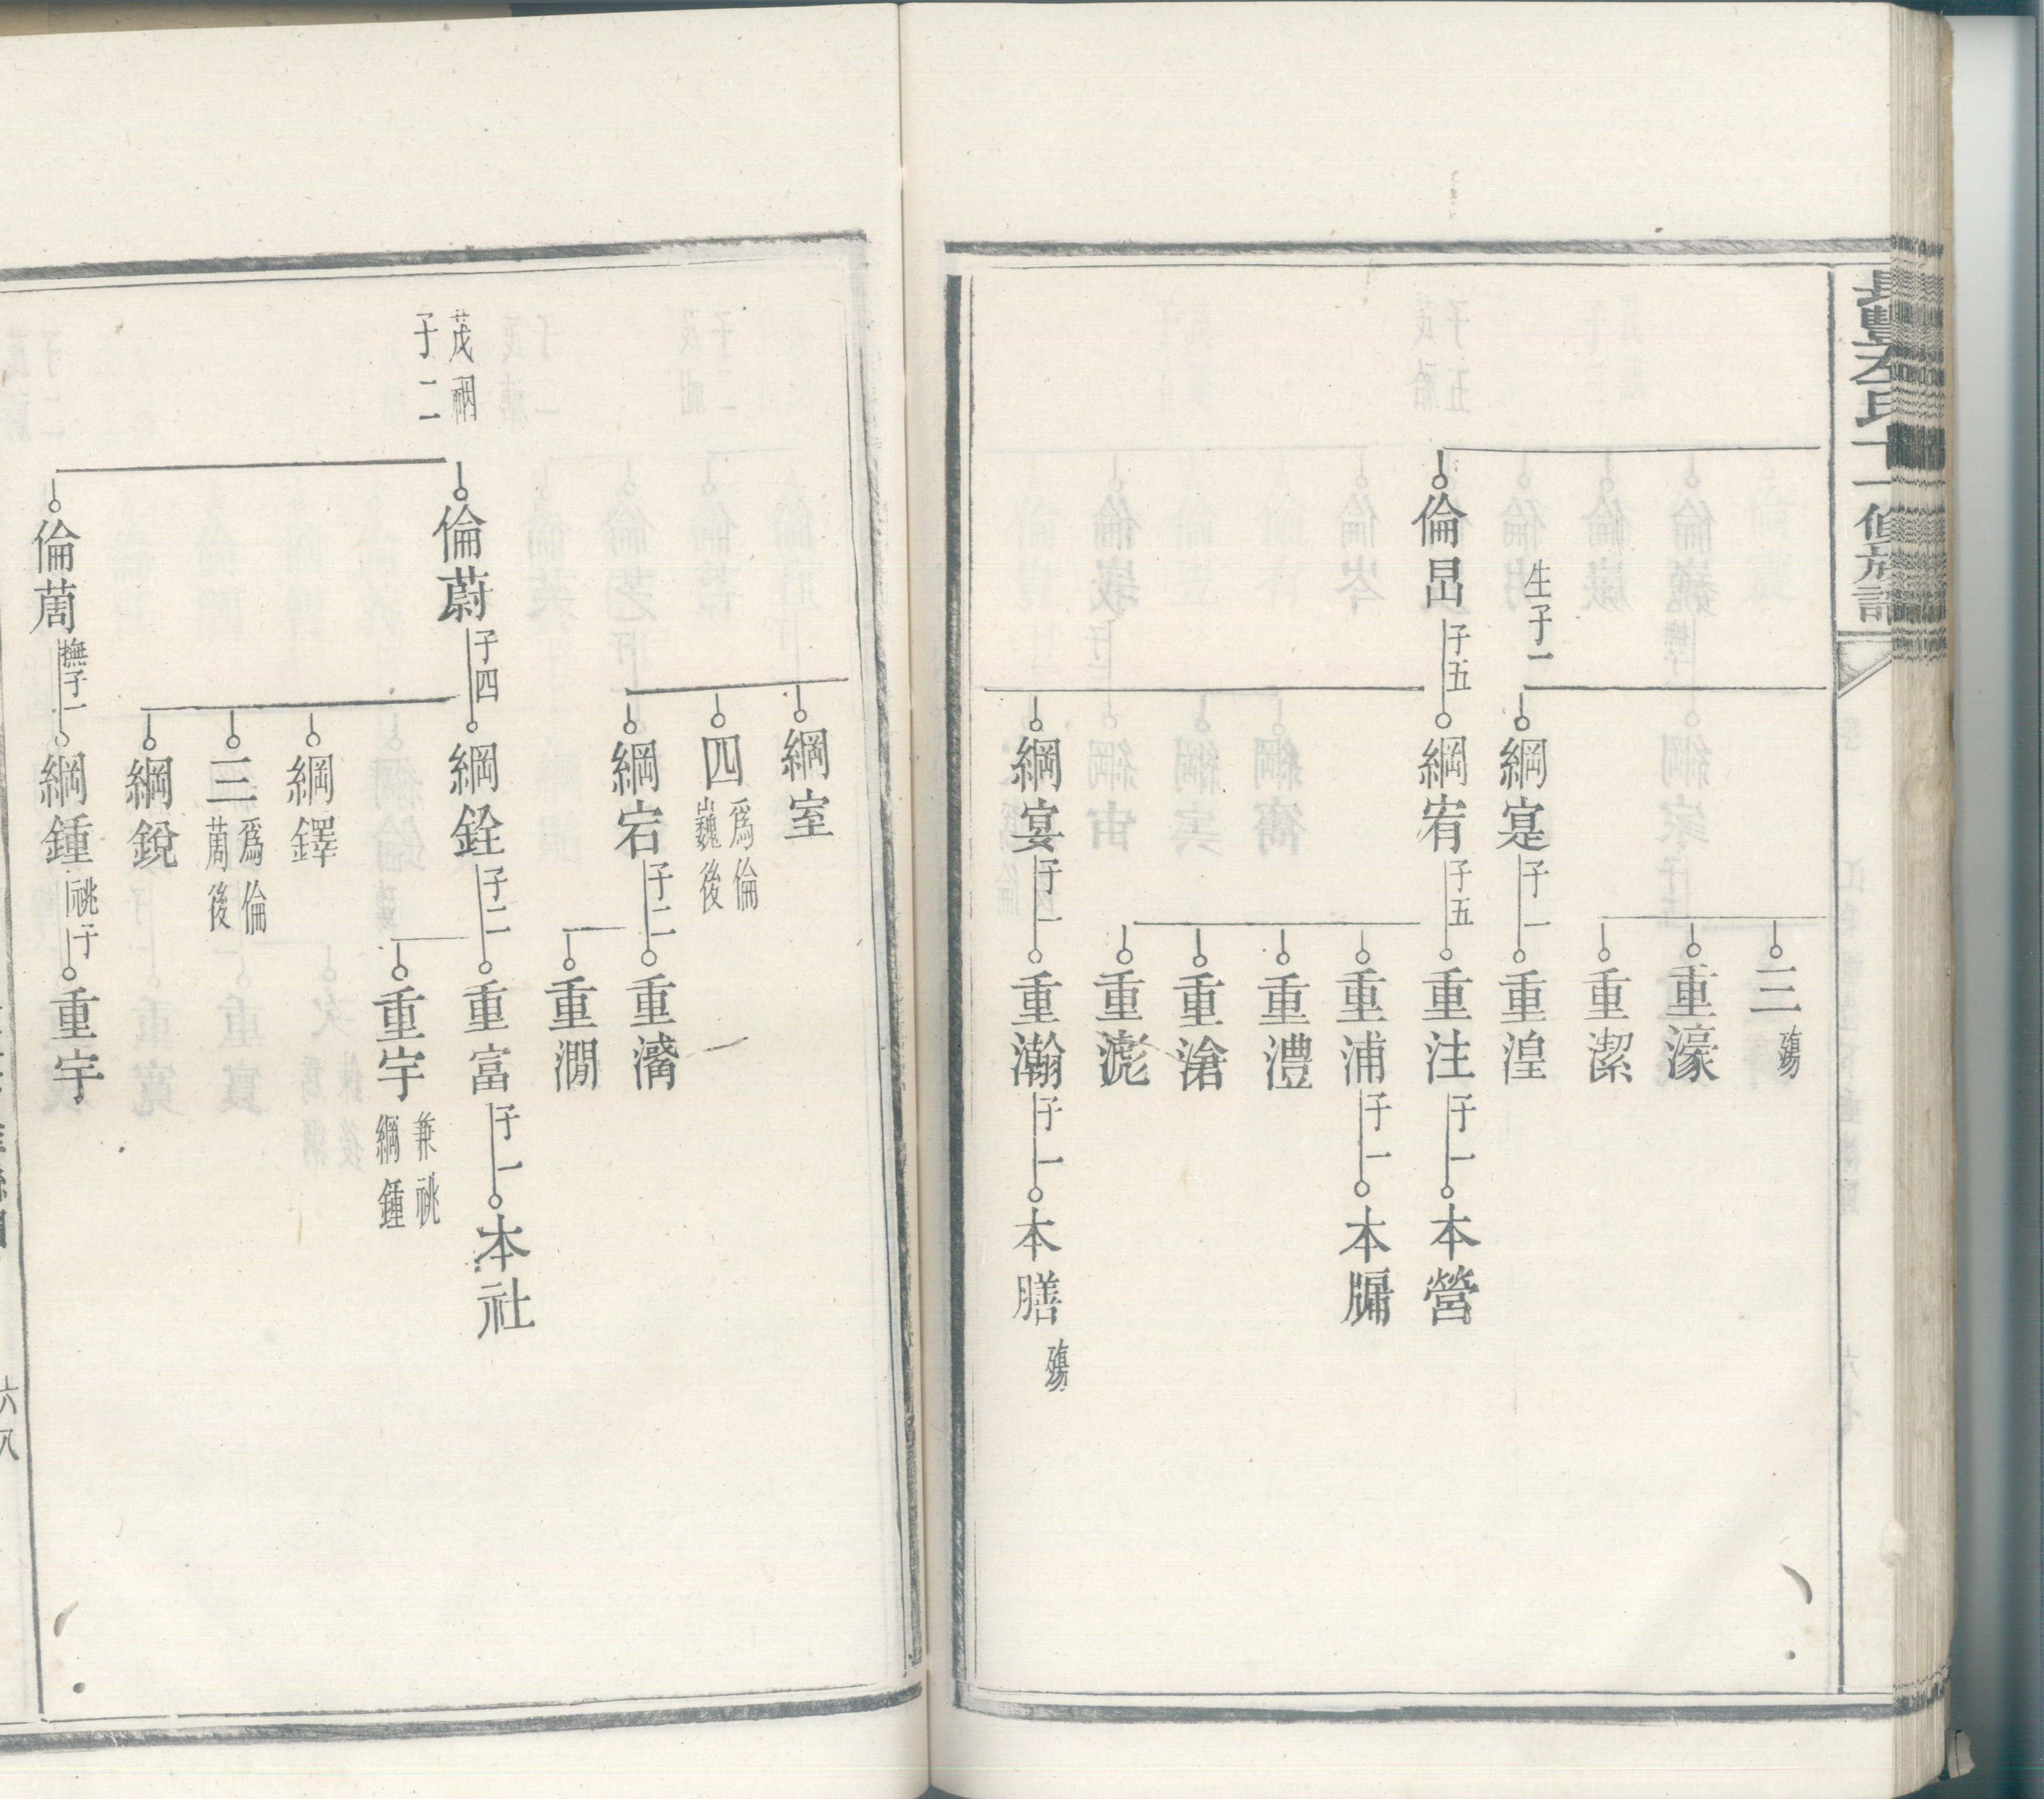 三 殤
重濠
重潔
生子一
綱寔 子一
重湟
倫昌 子五
綱宥 子五
重注 子一
本營
重浦 子一
本牖
重澧
重滄
重滮
綱宴 子一
重瀚 子一
本膳 殤
綱室
四 爲倫巍後
綱宕 子二
重潃
重澗
茂裀
子二
倫蔚 子四
綱銓 子二
重富 子一
本社
重宇 兼祧綱鍾
綱鐸
三 爲倫萳後
綱銳
倫萳 撫子一
綱鍾 祧子
重宇
六八